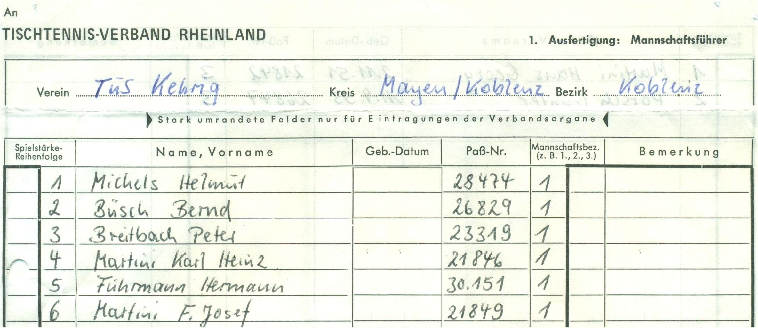 An
TISCHTENNIS-VERBAND RHEINLAND
1. Ausfertigung: Mannschaftsführer
Verein TuS Kehrig Kreis Mayen/Koblenz Bezirk Koblenz
Stark umrandete Felder nur für Eintragungen der Verbandsorgane
Spielstärke-Reihenfolge Name, Vorname Geb.-Datum Paß-Nr. Mannschaftsbez. (z. B. 1., 2., 3.) Bemerkung
1 Michels Helmut 28474 1
2 Büsch Bernd 26829 1
3 Breitbach Peter 23319 1
4 Martini Karl Heinz 21846 1
5 Führmann Hermann 30.151 1
6 Martini F. Josef 21849 1